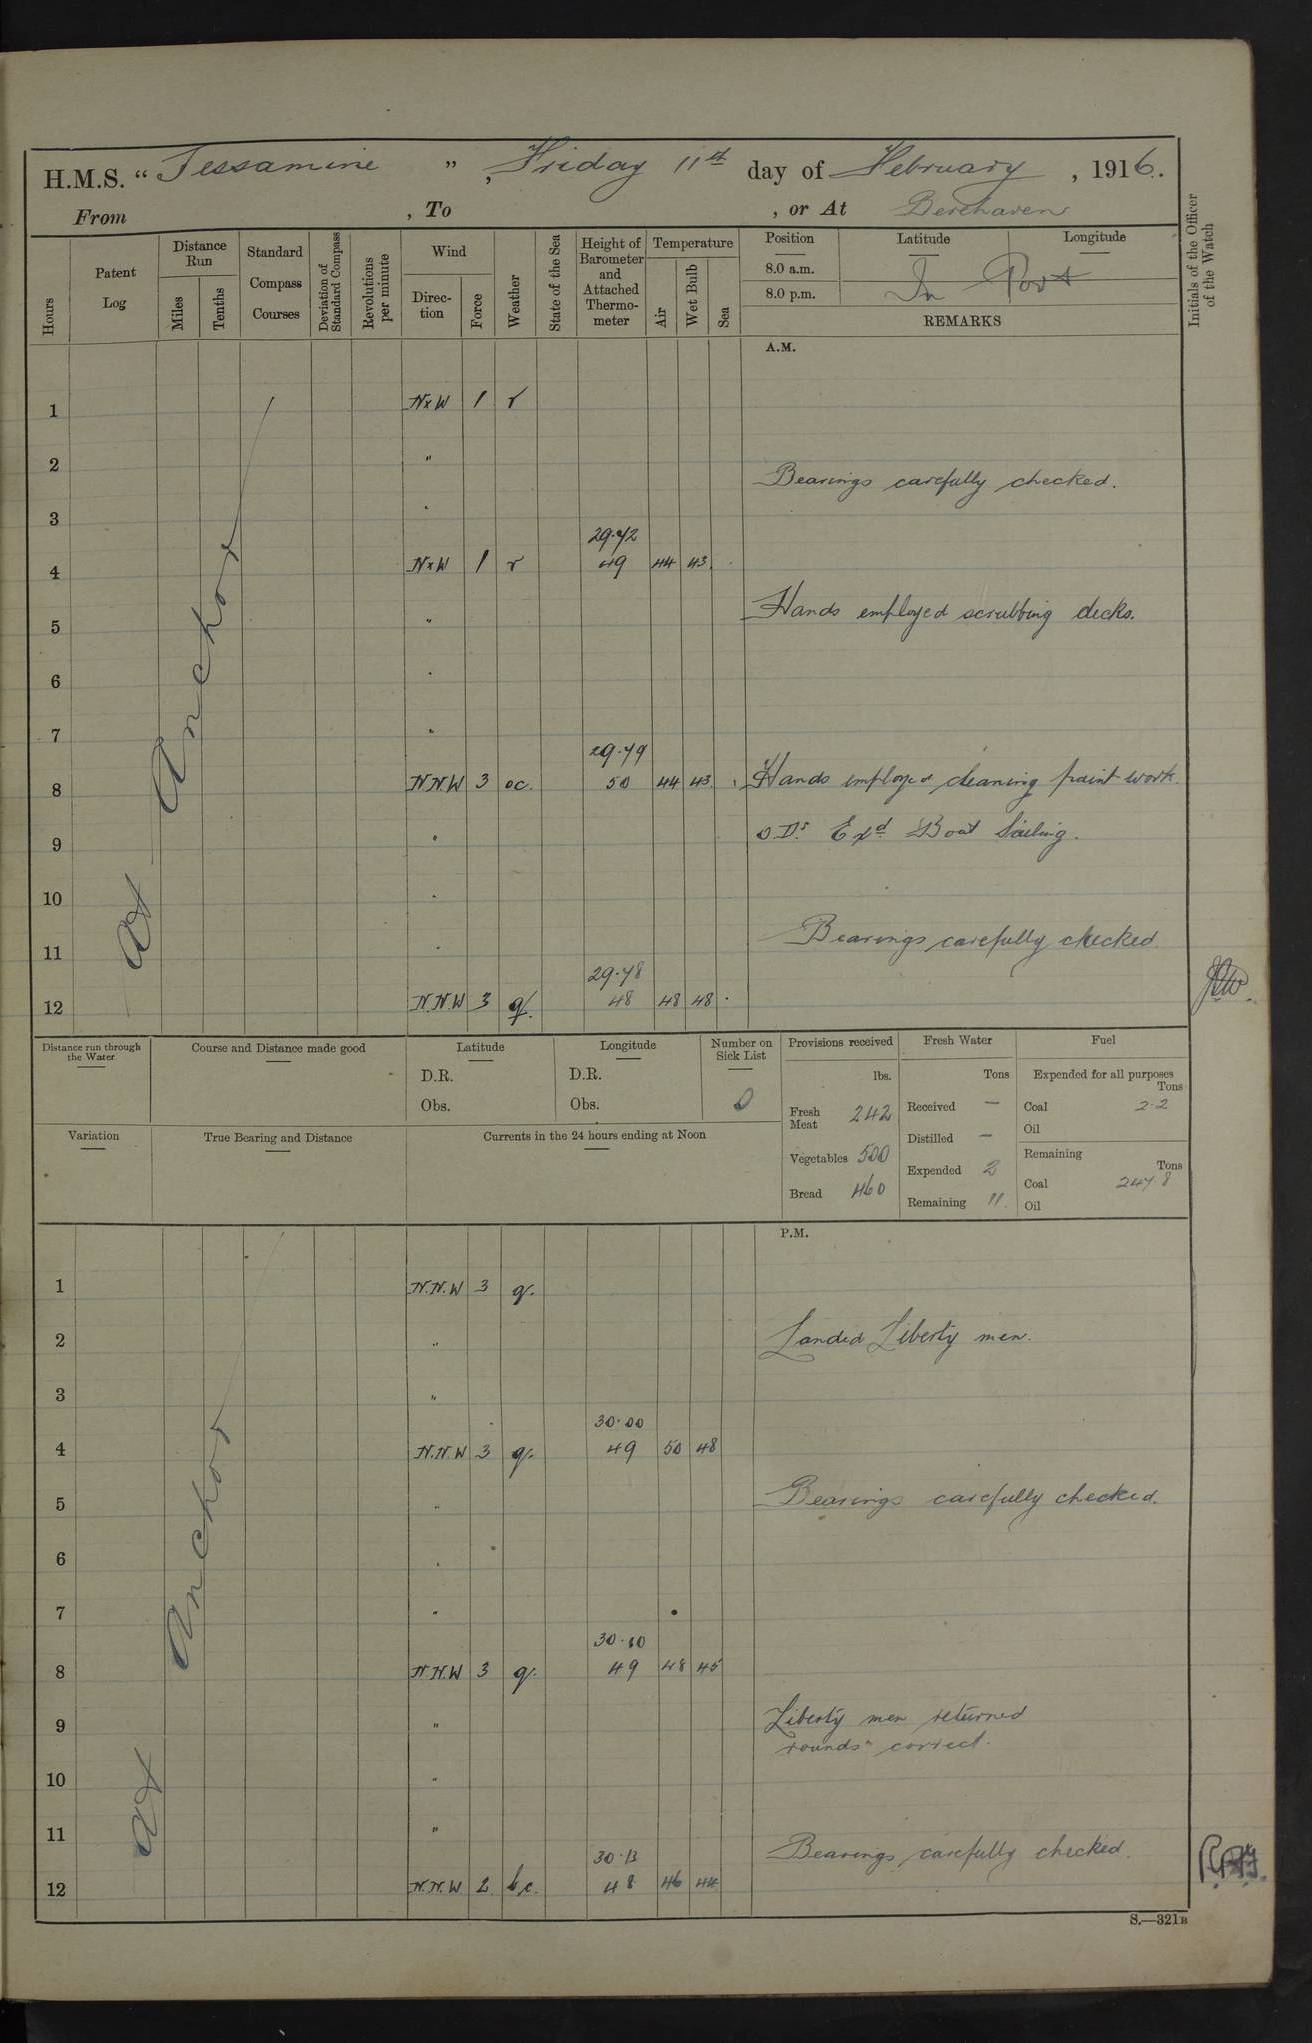 H.M.S. "Jessamine", Friday 11th day of February, 1916.
From , To , or At Berehaven
Hours Patent Log Distance Run Miles Tenths Standard Compass Courses Deviation of Standard Compass Revolutions per minute Wind Direc-tion Force Weather State of the Sea Height of Barometer and Attached Thermo-meter Temperature Air Wet Bulb Sea Position Latitude Longitude Initials of the Officer of the Watch
8.0 a.m.
8.0 p.m. In Port
REMARKS
A.M.
At Anchor
1 NxW 1 r
2 "
Bearings carefully checked.
3 "
29.72
4 NxW 1 r 49 44 43
5 " Hands employed scrubbing decks.
6 "
7 "
29.79
8 N.N.W 3 oc. 50 44 43 Hands employed cleaning paint work.
9 " O.Ds Exd Boat Sailing.
10 "
11 " Bearings carefully checked
29.78
12 N.N.W 3 g. 48 48 48
Distance run through the Water Course and Distance made good Latitude Longitude Number on Sick List Provisions received Fresh Water Fuel
D.R. D.R. lbs. Tons Expended for all purposes Tons
Obs. Obs. 0 Fresh Meat 242 Received — Coal 2.2
Oil
Variation True Bearing and Distance Currents in the 24 hours ending at Noon Distilled —
Vegetables 500 Expended 2 Remaining Tons
Coal 247.8
Bread 460 Remaining 11. Oil
P.M.
At Anchor
1 N.N.W 3 g.
2 " Landed Liberty men.
3 "
30.00
4 N.N.W 3 g. 49 50 48
5 " Bearings carefully checked.
6 "
7 "
30.10
8 N.N.W 3 g. 49 48 45
9 " Liberty men returned
rounds correct.
10 "
11 " Bearings carefully checked.
30.13
12 N.N.W 2 b.c. 48 46 44
S.—321B